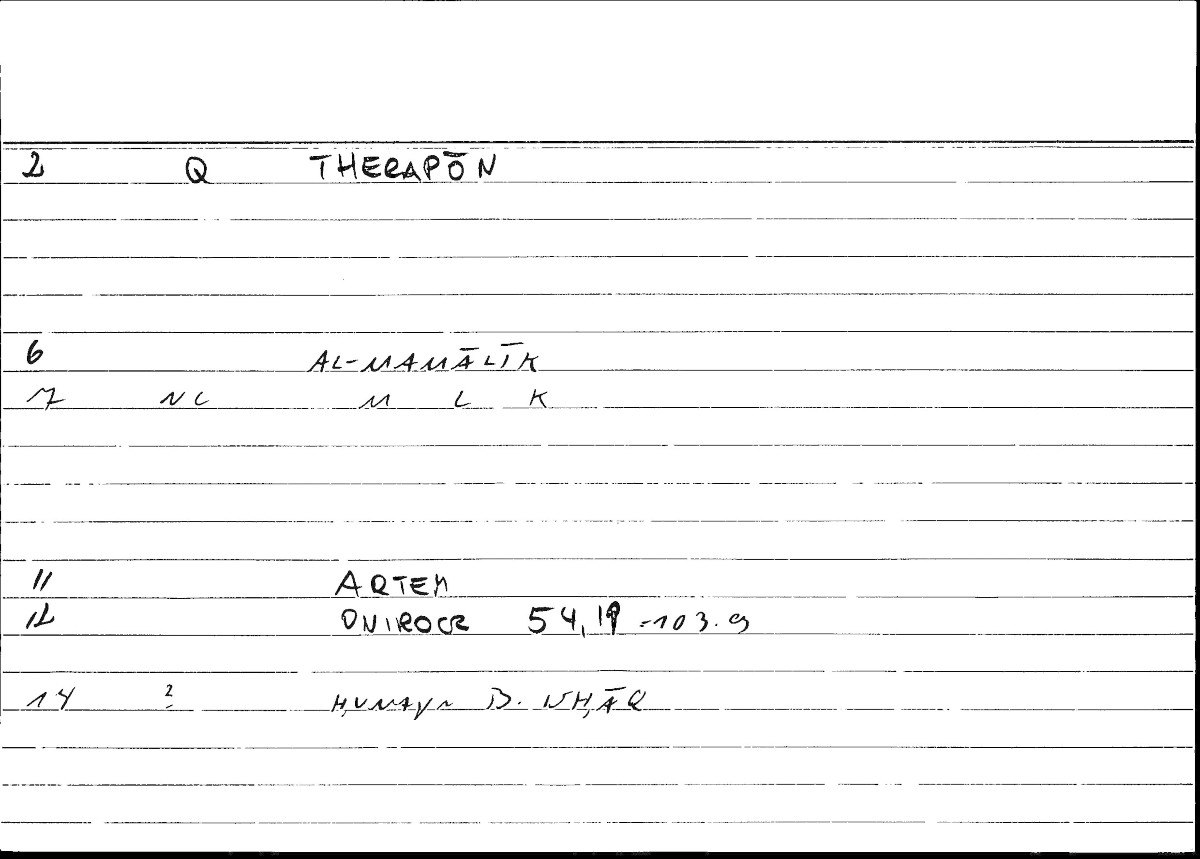 2 Q THERAPŌN
6 AL-MAMĀLĪK
7 NC M L K
11 ARTEM
12 ONIROCR 54,19 =103.9
14 2 ḤUNAYN B. ISḤĀQ